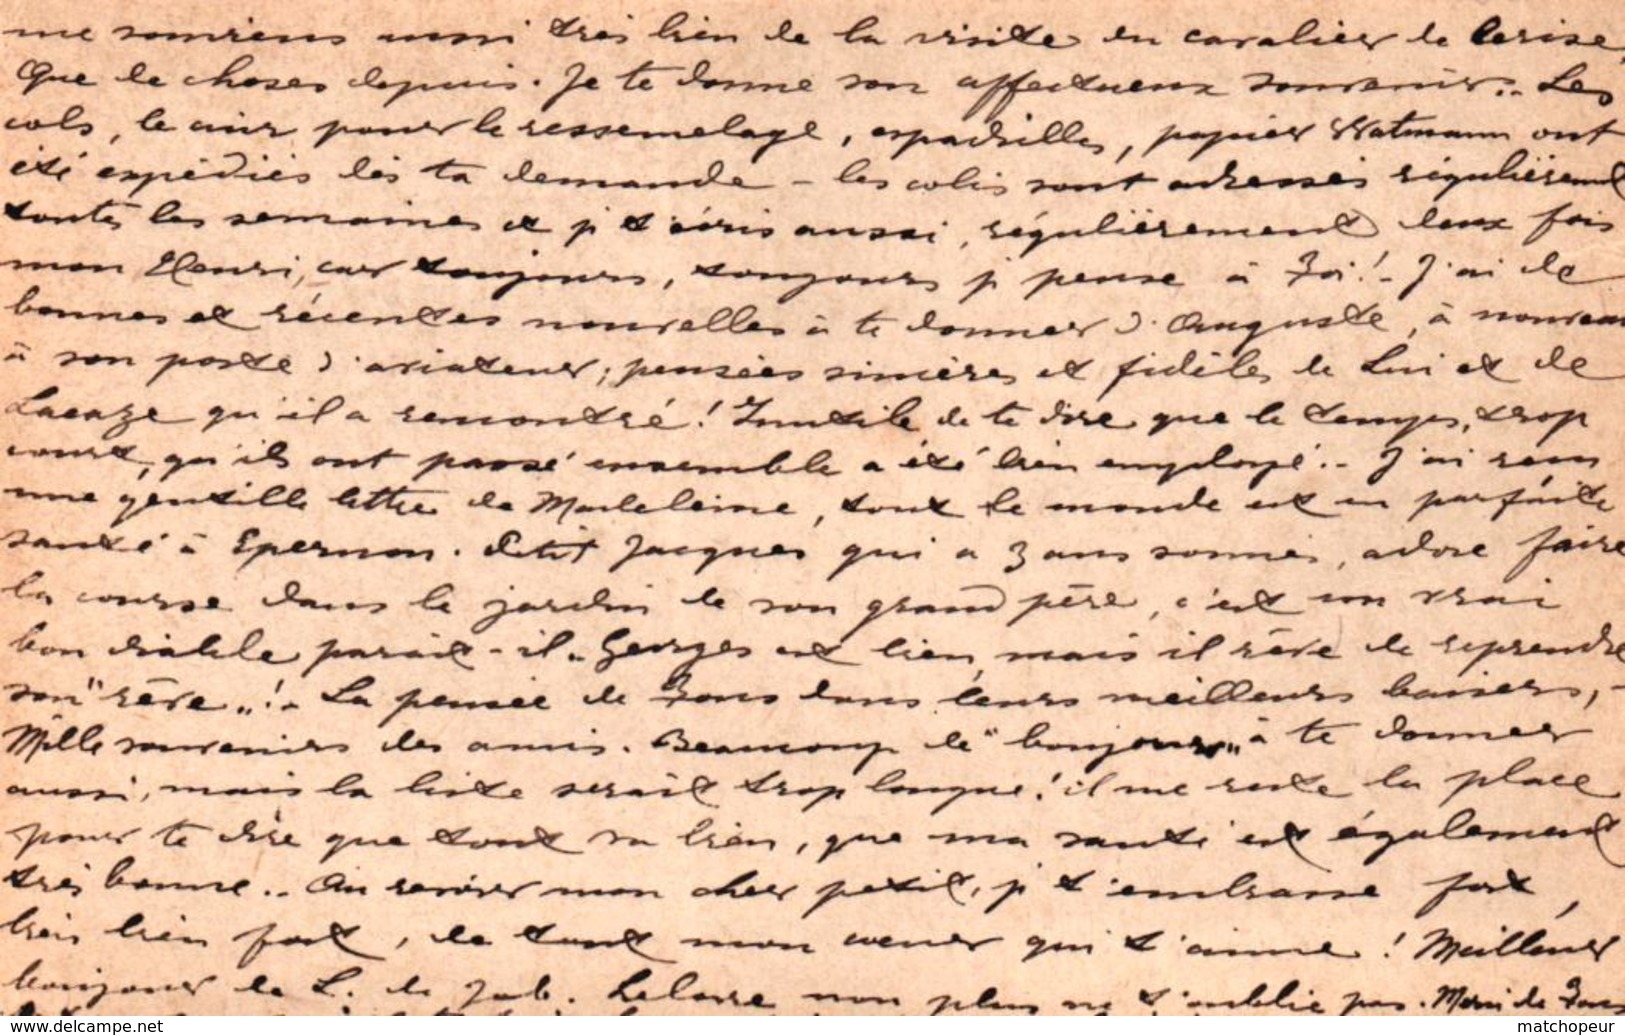 me souviens aussi très bien de la visite du cavalier de Cerise,
Que de choses depuis. Je te donne son affectueux souvenir.. Les
cols, le cuir pour le ressemelage, espadrilles, papier Watmann ont
été expédiés dès ta demande – les colis sont adressés régulièrement
toutes les semaines et je t'écris aussi, régulièrement deux fois
mon Henri, car toujours, toujours je pense à Toi!- J'ai de
bonnes et récentes nouvelles à te donner d'Auguste, à nouveau
à son poste d'aviateur; pensées sincères et fidèles de Lui et de
Lacaze qu'il a rencontré! Inutile de te dire que le temps, trop
court, qu'ils ont passé ensemble a été bien employé.. J'ai reçu
une gentille lettre de Madeleine, tout le monde est en parfaite
santé à Epernon. Petit Jacques qui a 3 ans sonnés, adore faire
la course dans le jardin de son grand père, c'est un vrai
bon diable parait-il.. Georges est bien, mais il rêve de reprendre
son "rêve"!.. La pensée de Tous dans leurs meilleurs baisers,-
Mille souvenirs des amis. Beaucoup de "bonjours" à te donner
aussi, mais la liste serait trop longue! il me reste la place
pour te dire que tout va bien, que ma santé est également
très bonne.. Au revoir mon cher petit, je t'embrasse fort,
bien bien fort, de tout mon coeur qui t'aime! Meilleur
bonjour de L. de non plus ne t'oublie pas. Merci de Tous
www.delcampe.net
matchopeur